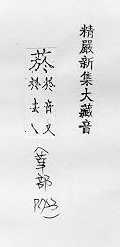 精嚴新集大藏音
菸
於音又
於去
草部